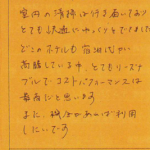 室内の清掃は行き届いており
とても快適にゆっくりとできました
どこのホテルも宿泊代が
高騰している中、とてもリーズナ
ブルで コストパフォーマンスは
最高だと思います
また、機会があれば利用
したいです